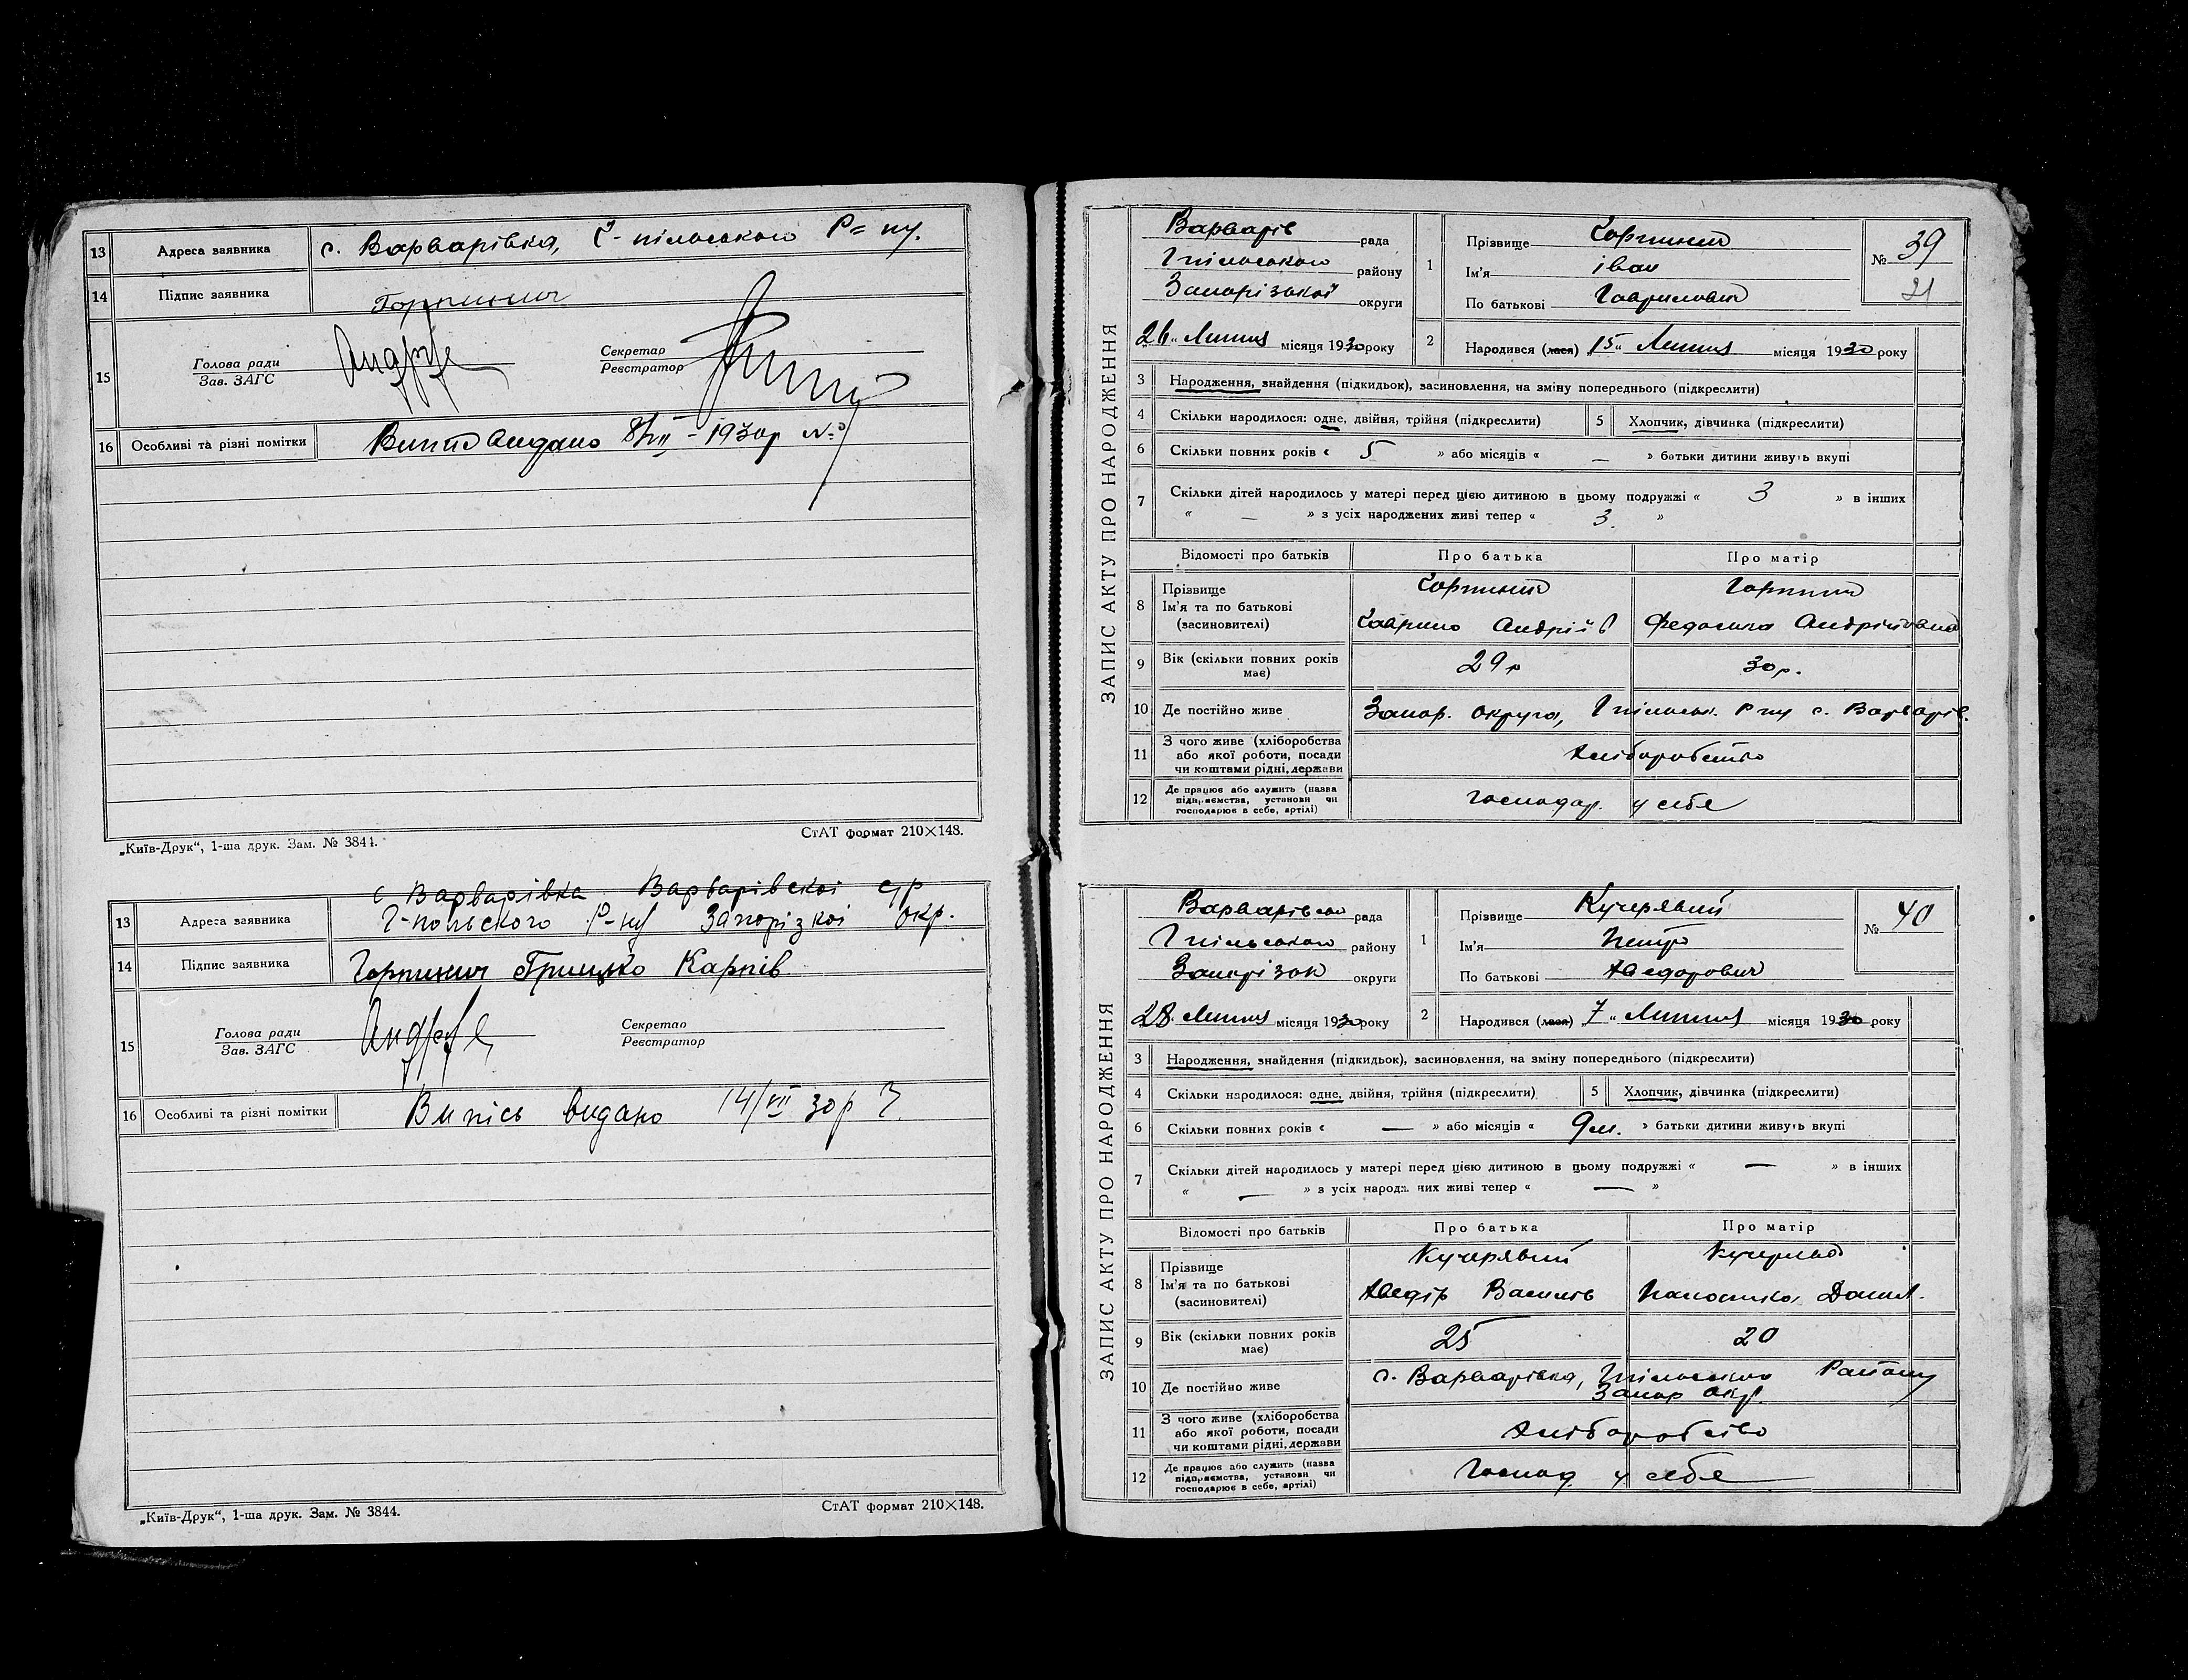 13 Адреса заявника с. Варварівка, Г-пільського Р-ну.
14 Підпис заявника Горпинич
15 Голова ради
Зав. ЗАГС
Секретар
Реєстратор
16 Особливі та різні помітки видано 8/VII - 1930р №
„Київ-Друк“, 1-ша друк. Зам. № 3844.
СтАТ формат 210×148.
13 Адреса заявника с Варварівка Варварівскоі с/р
Г-польского Р-ну Запорізкоі окр.
14 Підпис заявника Горпинич Грицько Карпів
15 Голова ради
Зав. ЗАГС
Секретар
Реєстратор
16 Особливі та різні помітки Випісь видано 14/VII 30р
„Київ-Друк“, 1-ша друк. Зам. № 3844.
СтАТ формат 210×148.
ЗАПИС АКТУ ПРО НАРОДЖЕННЯ
Варварів рада
Гпільського району
Запорізької округи
26 „ Липня місяця 1930 року
1 Прізвище Горпинич
Ім'я Іван
По батькові Гаврилович
№ 39
21
2 Народився (лася) 15 „ Липня місяця 1930 року
3 Народження, знайдення (підкидьок), засиновлення, на зміну попереднього (підкреслити)
4 Скільки народилося: одне, двійня, трійня (підкреслити)
5 Хлопчик, дівчинка (підкреслити)
6 Скільки повних років « 5 » або місяців « — » батьки дитини живуть вкупі
7 Скільки дітей народилось у матері перед цією дитиною в цьому подружжі « 3 » в інших
« — » з усіх народжених живі тепер « 3. »
Відомості про батьків Про батька Про матір
8 Прізвище Горпинич Горпинич
Ім'я та по батькові
(засиновителі) Гаврило Андріїв Федоська Андріївна
9 Вік (скільки повних років має) 29р 30р.
10 Де постійно живе Запор. округа, Гпільськ. Рну с. Варварів.
11 З чого живе (хліборобства
або якої роботи, посади
чи коштами рідні, держави
Хліборобство
12 Де працює або служить (назва
підприємства, установи чи
господарює в себе, артілі)
господар. у себе
ЗАПИС АКТУ ПРО НАРОДЖЕННЯ
Варварівсько рада
Гпільського району
Запорізок округи
28 „ Липня місяця 1930 року
1 Прізвище Кучерявий
Ім'я Петро
По батькові Хведорович
№ 40
2 Народився (лася) 7 „ Липня місяця 1930 року
3 Народження, знайдення (підкидьок), засиновлення, на зміну попереднього (підкреслити)
4 Скільки народилося: одне, двійня, трійня (підкреслити)
5 Хлопчик, дівчинка (підкреслити)
6 Скільки повних років « — » або місяців « 9м. » батьки дитини живуть вкупі
7 Скільки дітей народилось у матері перед цією дитиною в цьому подружжі « — » в інших
« — » з усіх народж чих живі тепер « — »
Відомості про батьків Про батька Про матір
8 Прізвище Кучерявий
Ім'я та по батькові
(засиновителі) Хведір Василів Данил.
9 Вік (скільки повних років має) 25 20
10 Де постійно живе с. Варварівка, Гпільського Району
Запор окр.
11 З чого живе (хліборобства
або якої роботи, посади
чи коштами рідні, держави
Хліборобство
12 Де працює або служить (назва
підприємства, установи чи
господарює в себе, артілі)
Господ. у себе